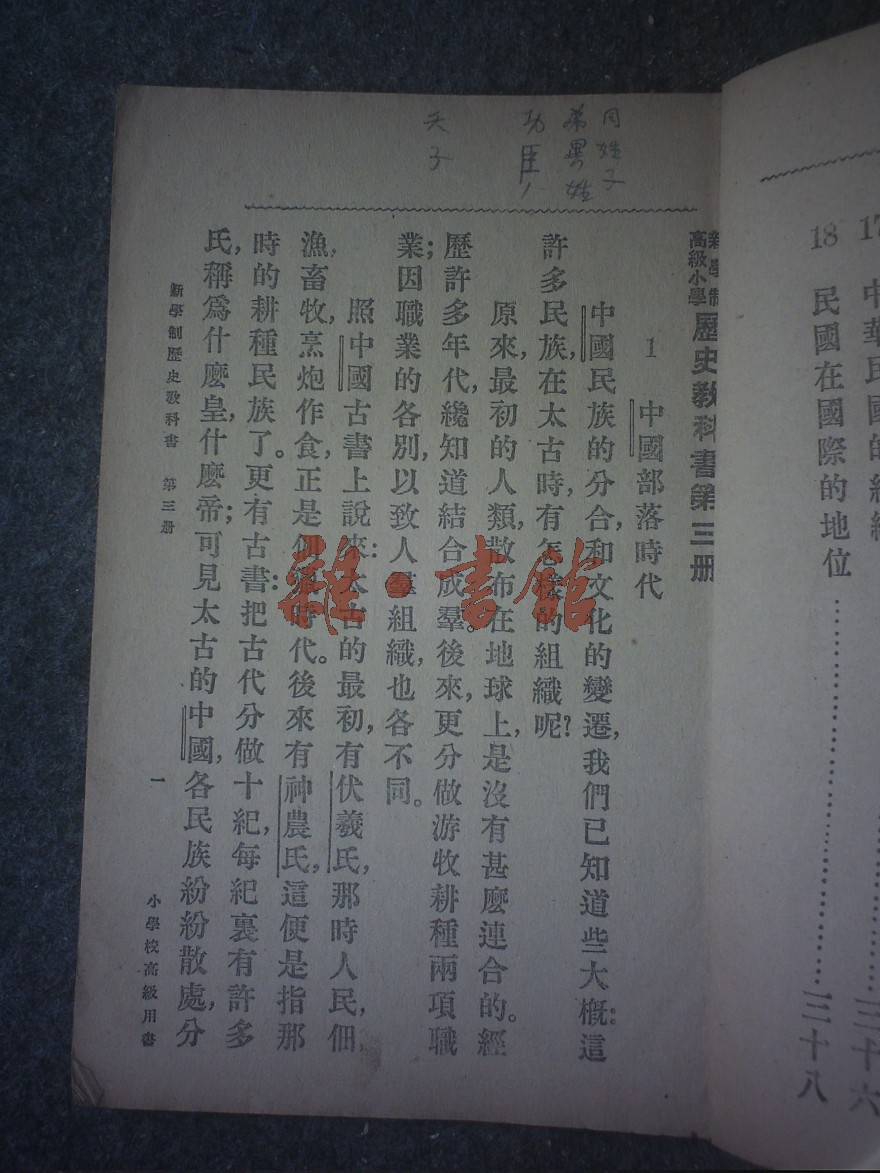 17 中華民國的組織
三十六
18 民國在國際的地位……三十八
同姓子
弟異姓
功臣
天子
新學制
高級小學
歷史教科書第三册
1 中國部落時代
中國民族的分合,和文化的變遷,我們已知道些大概:這
許多民族,在太古時,有怎樣的組織呢?
原來,最初的人類,散布在地球上,是沒有甚麼連合的。經
歷許多年代,纔知道結合成羣。後來,更分做游牧耕種兩項職
業;因職業的各別,以致人羣組織,也各不同。
照中國古書上說來:太古的最初,有伏羲氏,那時人民,佃,
漁,畜牧,烹炮作食,正是個遊牧時代。後來有神農氏,這便是指那
時的耕種民族了。更有古書:把古代分做十紀,每紀裏有許多
氏,稱爲什麼皇,什麼帝;可見太古的中國,各民族紛紛散處,分
新學制歷史教科書 第三册
一
小學校高級用書
雜·書館